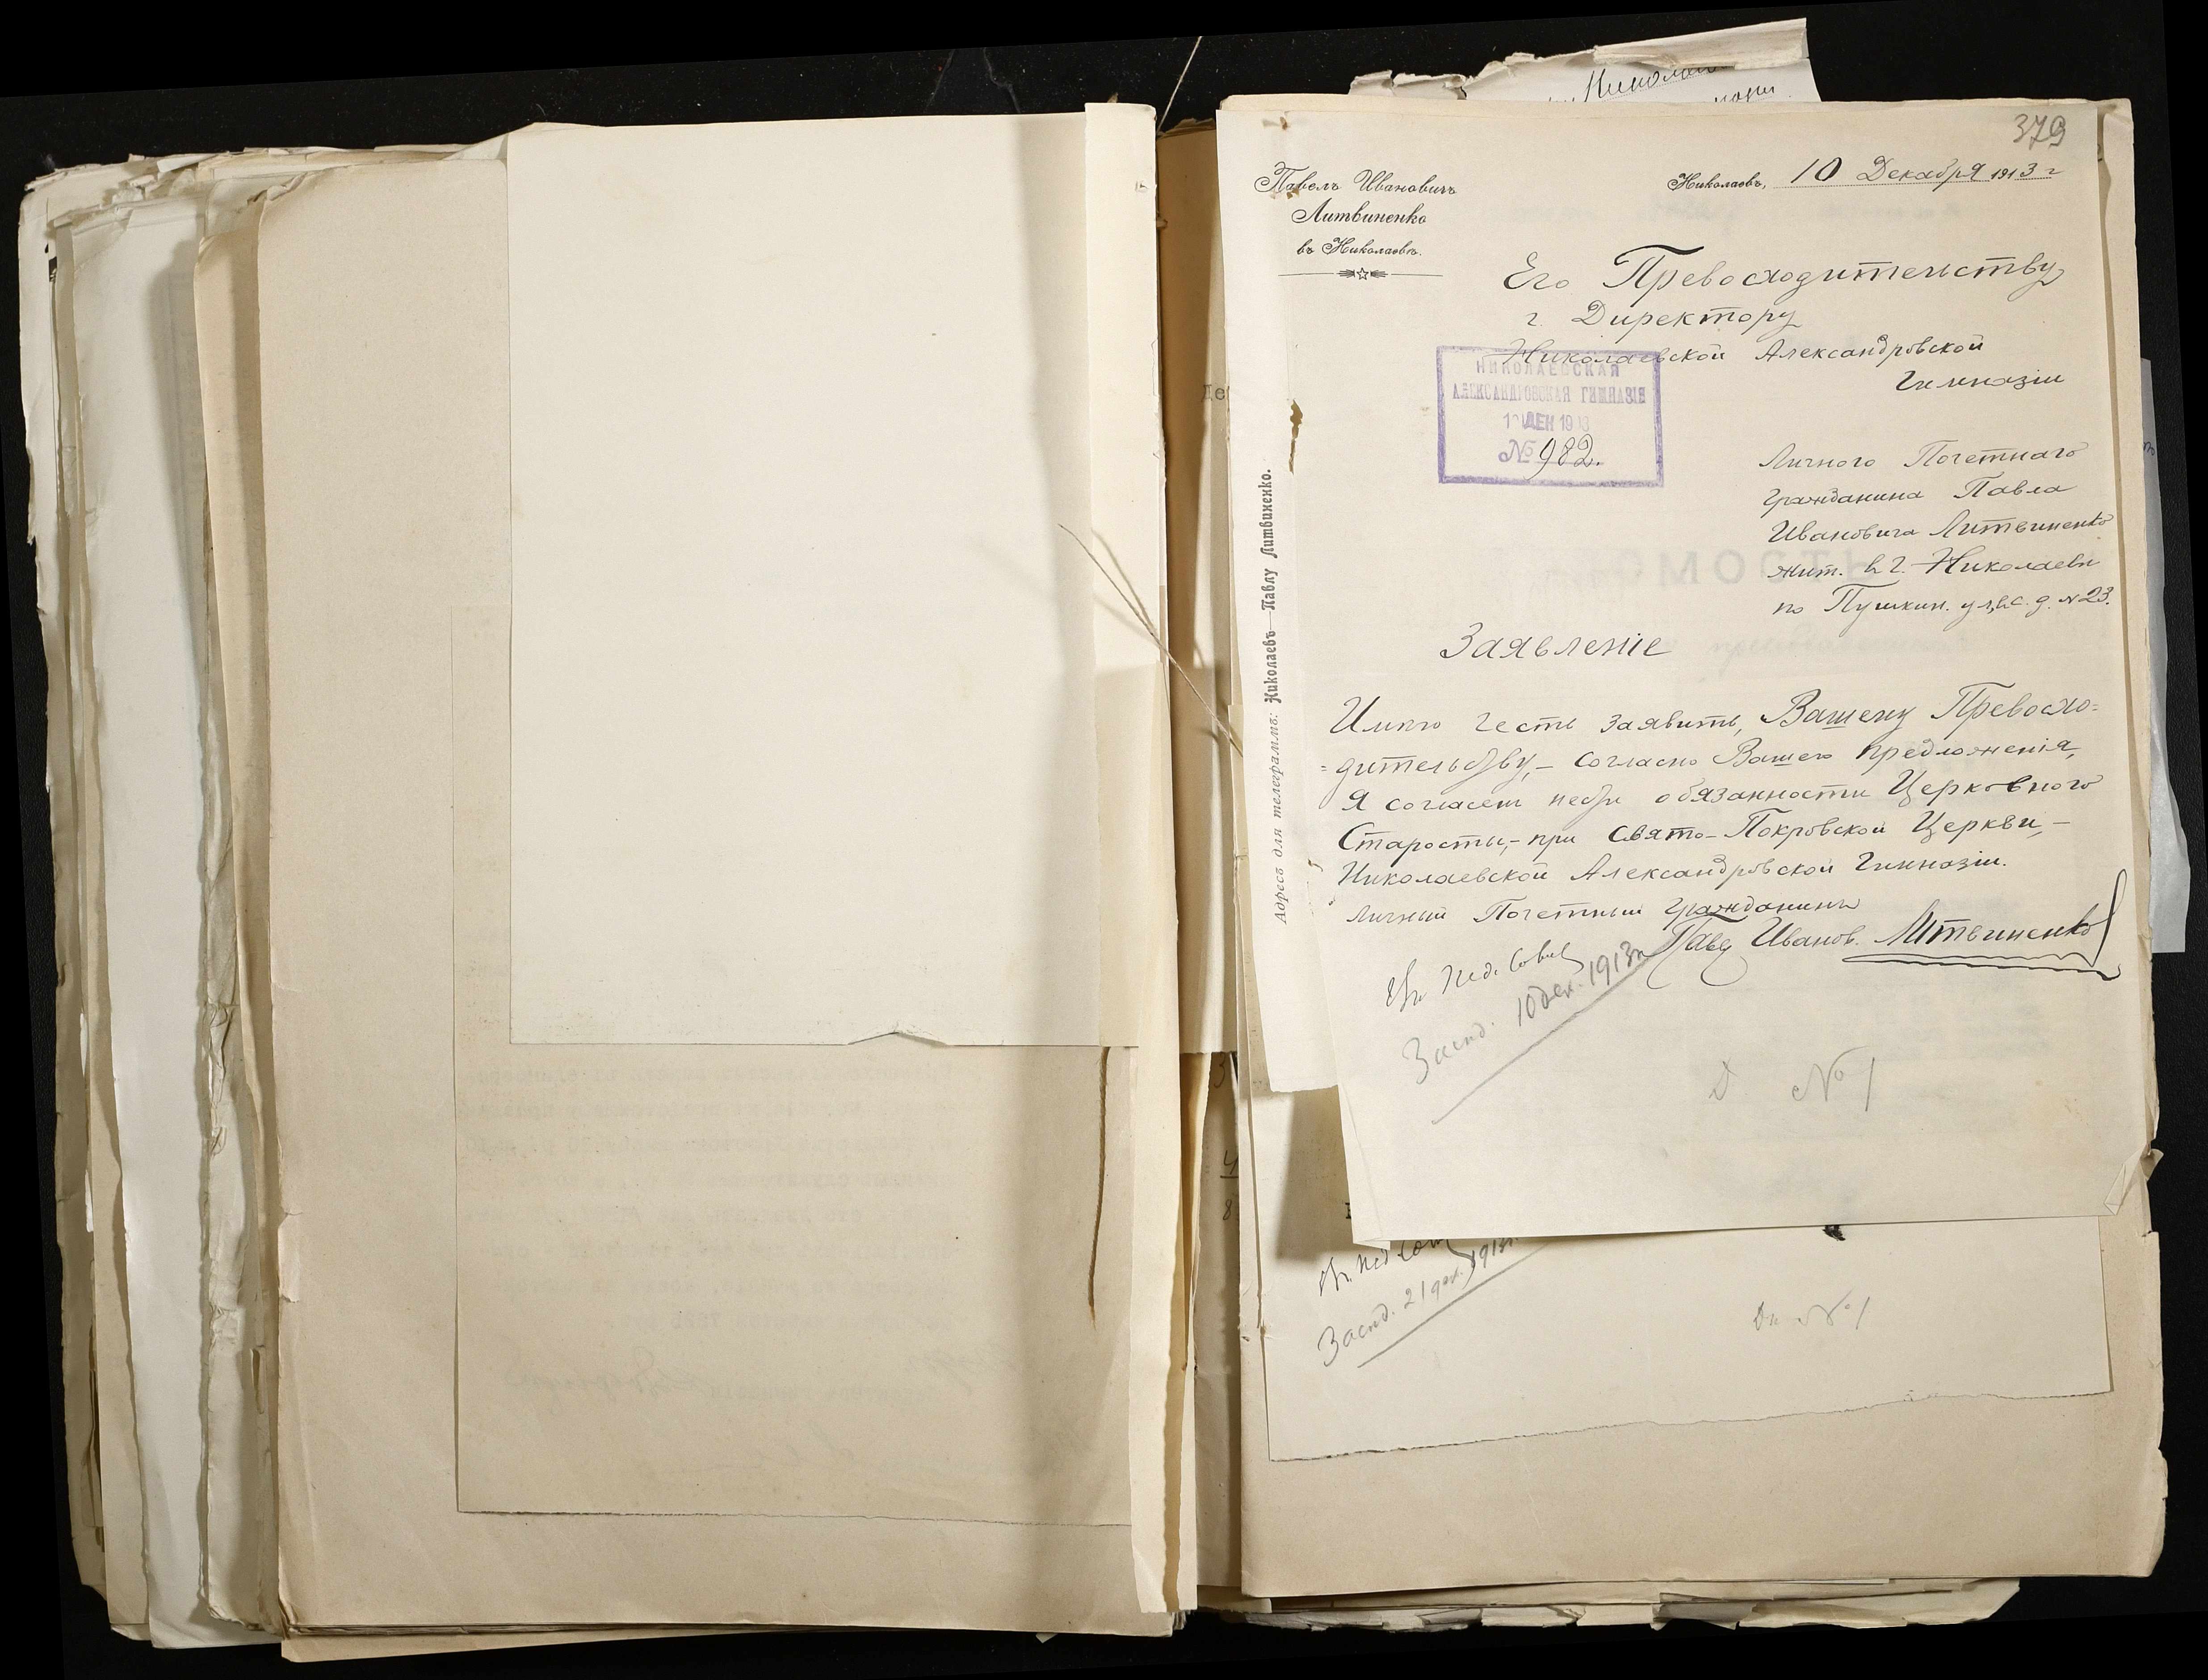 379
Павелъ Ивановичъ
Литвиненко
въ Николаевѣ.
Николаевъ, 10 Декабря 1913 г
Его Превосходительству
г. Директору
Николаевской Александровской
Гимназіи
НИКОЛАЕВСКАЯ
АЛЕКСАНДРОВСКАЯ ГИМНАЗІЯ
ДЕК 1913
№ 982.
Личного Почетнаго
Гражданина Павла
Ивановича Литвиненко
жит. в г. Николаевѣ
по Пушкин. ул, в с. д. № 23.
Адресъ для телеграммъ: Николаевъ—Павлу Литвиненко.
Заявленіе
Имѣю честь заявить, Вашему Превосхо=
=дительству,– согласно Вашего предложенія,
Я согласен нести обязанности Церковного
Старосты,– при Свято-Покровской Церкви,–
Николаевской Александровской Гимназіи.
Личный Почетный Гражданинъ
Павел Иванов. Литвиненко
Въ Пед. Совѣт
Засѣд. 10 дек. 1913г
Д №1
Въ Пед Сов
Засѣд. 21 дек. 1913г.
Дѣ №1